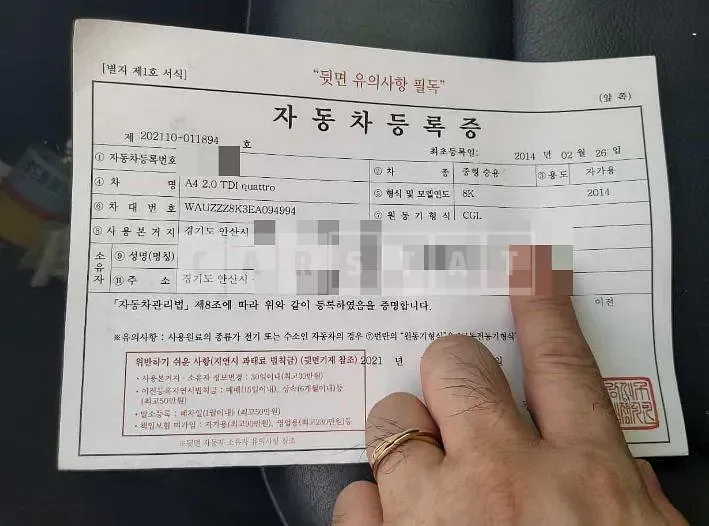 [별지 제1호 서식]
"뒷면 유의사항 필독"
(앞 쪽)
자동차등록증
제 202110-011894 호
최초등록일: 2014 년 02 월 26 일
① 자동차등록번호 ② 차 종 중형 승용 ③ 용도 자가용
④ 차 명 A4 2.0 TDI quattro ⑤ 형식 및 모델연도 8K 2014
⑥ 차 대 번 호 WAUZZZ8K3EA094994 ⑦ 원동기형식 CGL
⑧ 사용본거지 경기도 안산시
소유자 ⑨ 성명(명칭)
⑪ 주 소 경기도 안산시
CARSTAT
「자동차관리법」 제8조에 따라 위와 같이 등록하였음을 증명합니다. 이전
※유의사항 : 사용원료의 종류가 전기 또는 수소인 자동차의 경우 ⑦번란의 "원동기형식"
위반하기 쉬운 사항(지연시 과태료 범칙금) (뒷면기재 참조) 2021 년 일
· 사용본거지 · 소유자 정보변경 : 30일이내(최고30만원)
· 이전등록지연시범칙금 : 매매(15일이내), 상속(6개월이내)등
(최고50만원)
· 말소등록 : 폐차일(1월이내) (최고50만원)
· 책임보험 미가입 : 자가용(최고90만원), 영업용(최고230만원)등
※뒷면 자동차 소유자 유의사항 참조